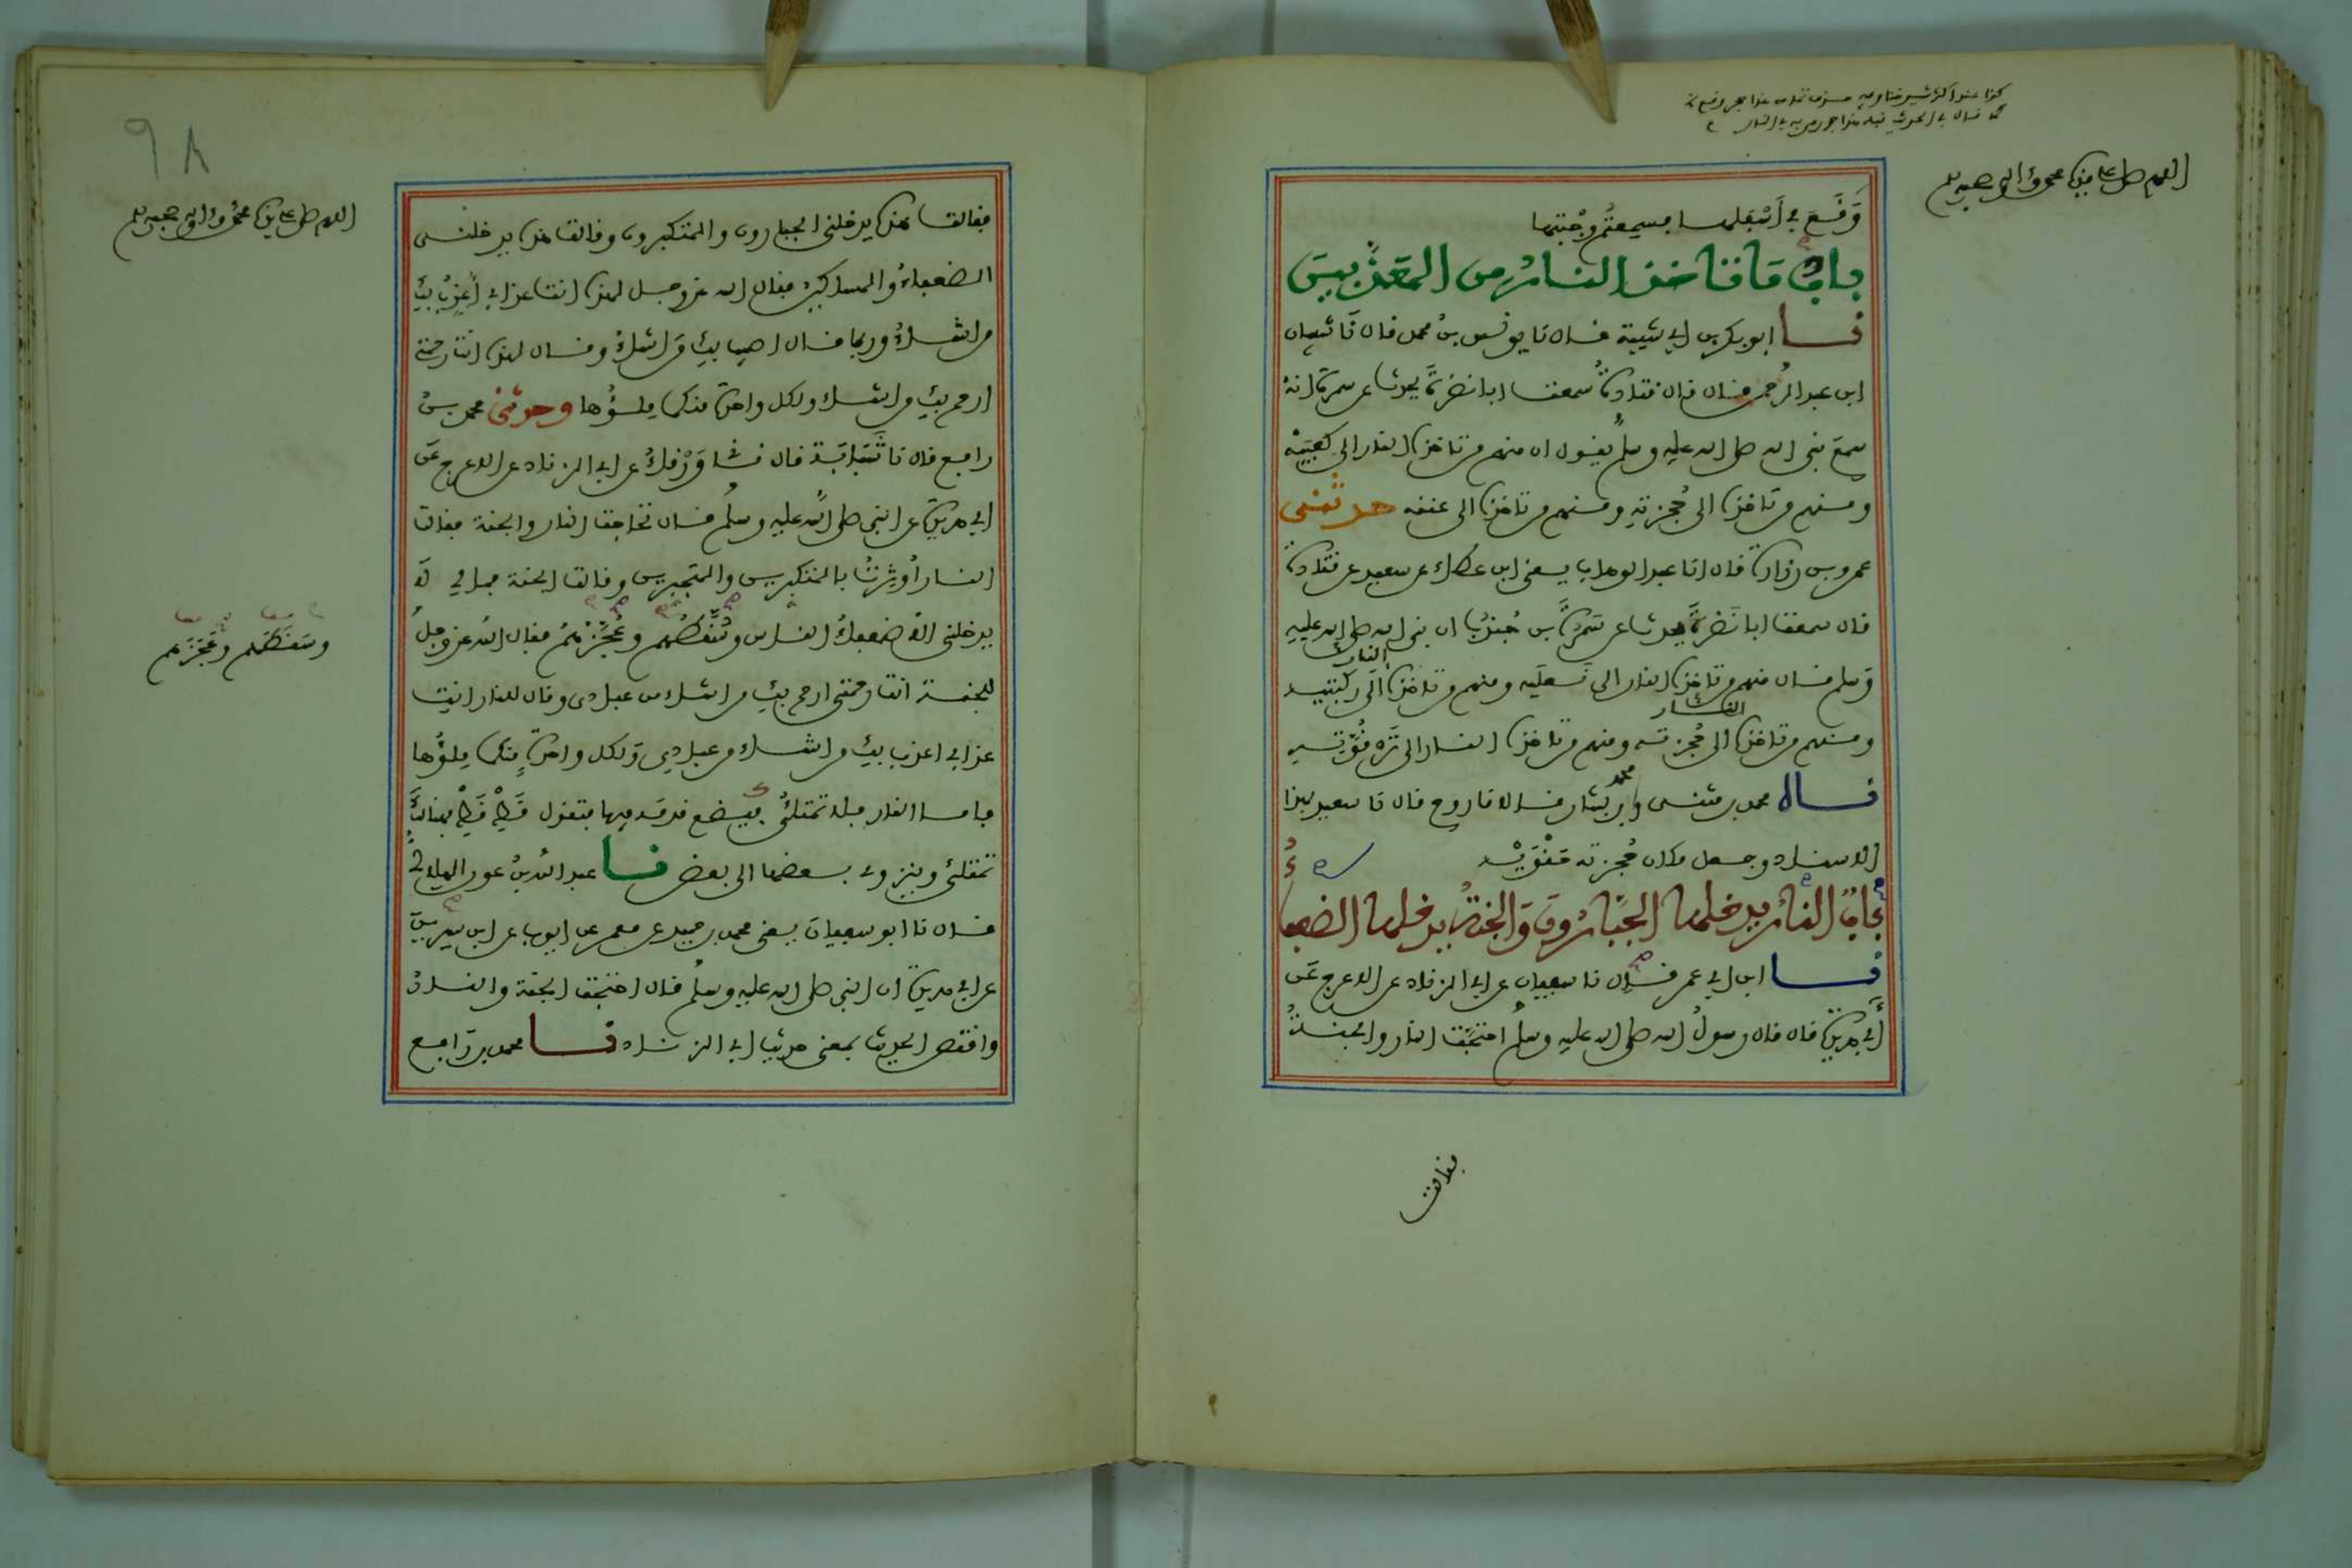 اللهم صل على سيدنا محمد وءاله وصحبه وسلم
وَقَعَ في أَسْفَلها فسمعتُم وَجْبتها
باب مَا تاخذ النارُ من المعَذَّبيين
نا ابو بكر بن ابي شيبة قال نا يونس بنُ محمد قال نَا شيبان
ابن عبد الرحمن قال قال قتادةُ سمعت ابا نضرةَ يحدث عن سمرة انهُ
سمعَ نبي الله صلى الله عليه وسلم يقول ان منهم من تاخذه النار الى كعبَيْه
ومنهم من تاخذه الى حُجزتهِ ومنهم من تاخذه الى عنقه حدثنى
عمرو بن زرارة قال انا عبد الوهاب يعنى ابن عطاء عن سعيد عن قتادة
قال سمعت ابا نَضرةَ يحدث عن سَمُرَةَ بن جُندُب ان نبي الله صلى الله عليهِ
وَسلم قال منهم من تاخذه النار الى كَعبَيه ومنهم من تاخذه النار الى ركبتيه
ومنهم من تاخذه النار الى حُجزته ومنهم من تاخذه النار الى تَرْقُوَتِه
نـاه محمد بن مثنى ومحمد بن بشار قالا نا روح قال نا سعيد بهذا
الاسناد وجعل مكان حُجزته حَقْوَيْه
بابُ النارُ يدخلها الجَبّارُونَ وَالجنةُ يدخلها الضعفاءُ
نـا ابن ابي عمر قال نا سفيان عن ابي الزناد عن الاعرج عَن
أَبي هريرة قال قال رسولُ الله صلى الله عليه وسلم احتجَّت النار والجنةُ
فقالت
٩٨
اللهم صل على سيدنا محمد وءاله وصحبه وسلم
فقالت هذه يدخلنى الجبارون والمتكبرون وقالت هذه يدخلنـى
الضعفاءُ والمساكين فقال الله عز وجل لهذه انت عذابي أُعَذِّبُ بكِ
من اشـاءُ وربما قال اصيب بكِ مَن اشاءُ وقال لهذه انت رحمتي
ارحم بكِ من اشاء ولكل واحدة منكما مِلـؤُها وحدثنى محمد بنُ
رافع قال نا شَبَابَة قال نى وَرْقاءُ عن ابي الزناد عن الاعرج عَن
ابي هريرة عن النبي صلى الله عليه وسلم قال تحاجت النار والجنة فقالت
النـار أُوثِرْتُ بالمتكبرين والمتجبرين وقالت الجنة فما لي لَا
يدخلنى الا ضعفاءُ النـاس وسَقَطُهم وعَجَزُهُم فقال الله عز وجلُ
للجنـة انت رحمتي ارحم بكِ من اشـاء من عبادى وقال للنار انتِ
عذابي اعذب بكِ من اشـاء من عبادِي وَلكل واحدةٍ منكما مِلؤُها
فامـا النار فلا تمتلئُ فيضع قدمه فيها فتقول قَطْ قَطْ فهنالكَ
تمتلئُ ويزوى بـعضها الى بعض نـا عبد الله بنُ عون الهلالي
قال نا ابو سفيانَ يعنى محمد بن حميد عن معمر عن ايوب عن ابن سيرينَ
عن ابي هريرة ان النبي صلى الله عليه وسلم قال احتجت الجنة والنـارُ
واقتص الحديث بمعنى حديث ابي الزناد نـا محمد بن رَافع
وسَقَطهم وَعَجَزهم